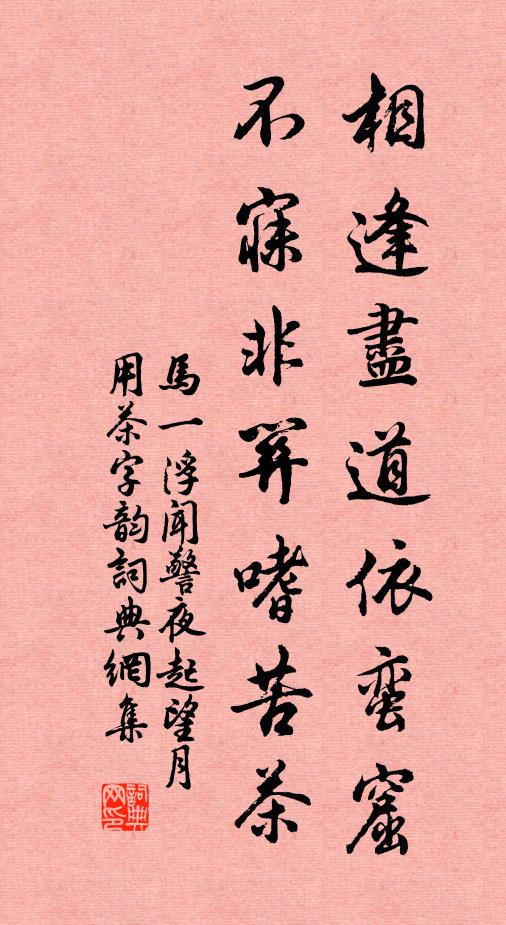 相逢盡道依蛮窟
不寐非關嗜苦茶
馬一浮聞警夜起望月
用茶字韵詞典網集
詞典网印